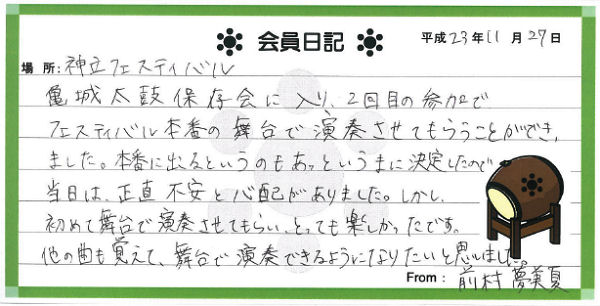 会員日記
平成23年11月27日
場所:神立フェスティバル
亀城太鼓保存会に入り、2回目の参加で
フェスティバル本番の舞台で演奏させてもらうことができ、
ました。本番に出るというのもあっというまに決定したので
当日は、正直不安と心配がありました。しかし、
初めて舞台で演奏させてもらい、とっても楽しかったです。
他の曲も覚えて、舞台で演奏できるようになりたいと思いました。
From: 前村 夢美夏